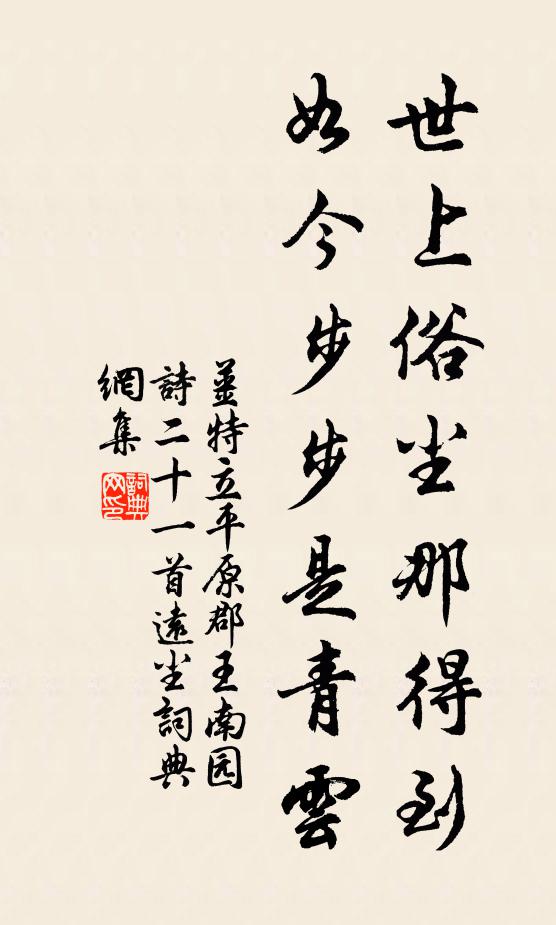 世上俗尘那得到
如今步步是青雲
薑特立平原郡王南园
詩二十一首遠尘詞典
網集
詞典网印